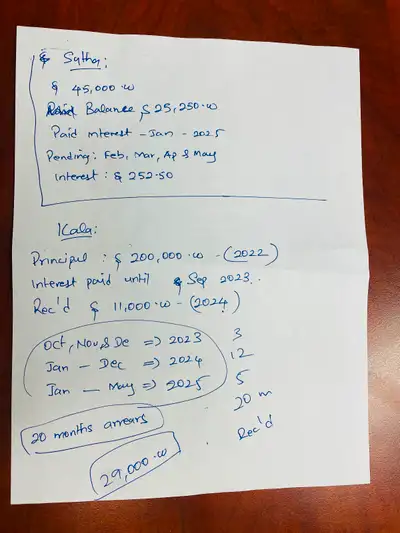 $ Sutha:
$ 45,000.00
Balance $ 25,250.00
Paid interest - Jan - 2025
Pending: Feb, Mar, Ap & May
Interest : $ 252.50
Kala:
Principal : $ 200,000.00 - (2022)
Interest paid until Sep 2023.
Rec'd $ 11,000.00 - (2024)
Oct, Nov, & De => 2023 3
Jan - Dec => 2024 12
Jan - May => 2025 5
20 m
20 months arrears
29,000.00 Rec'd